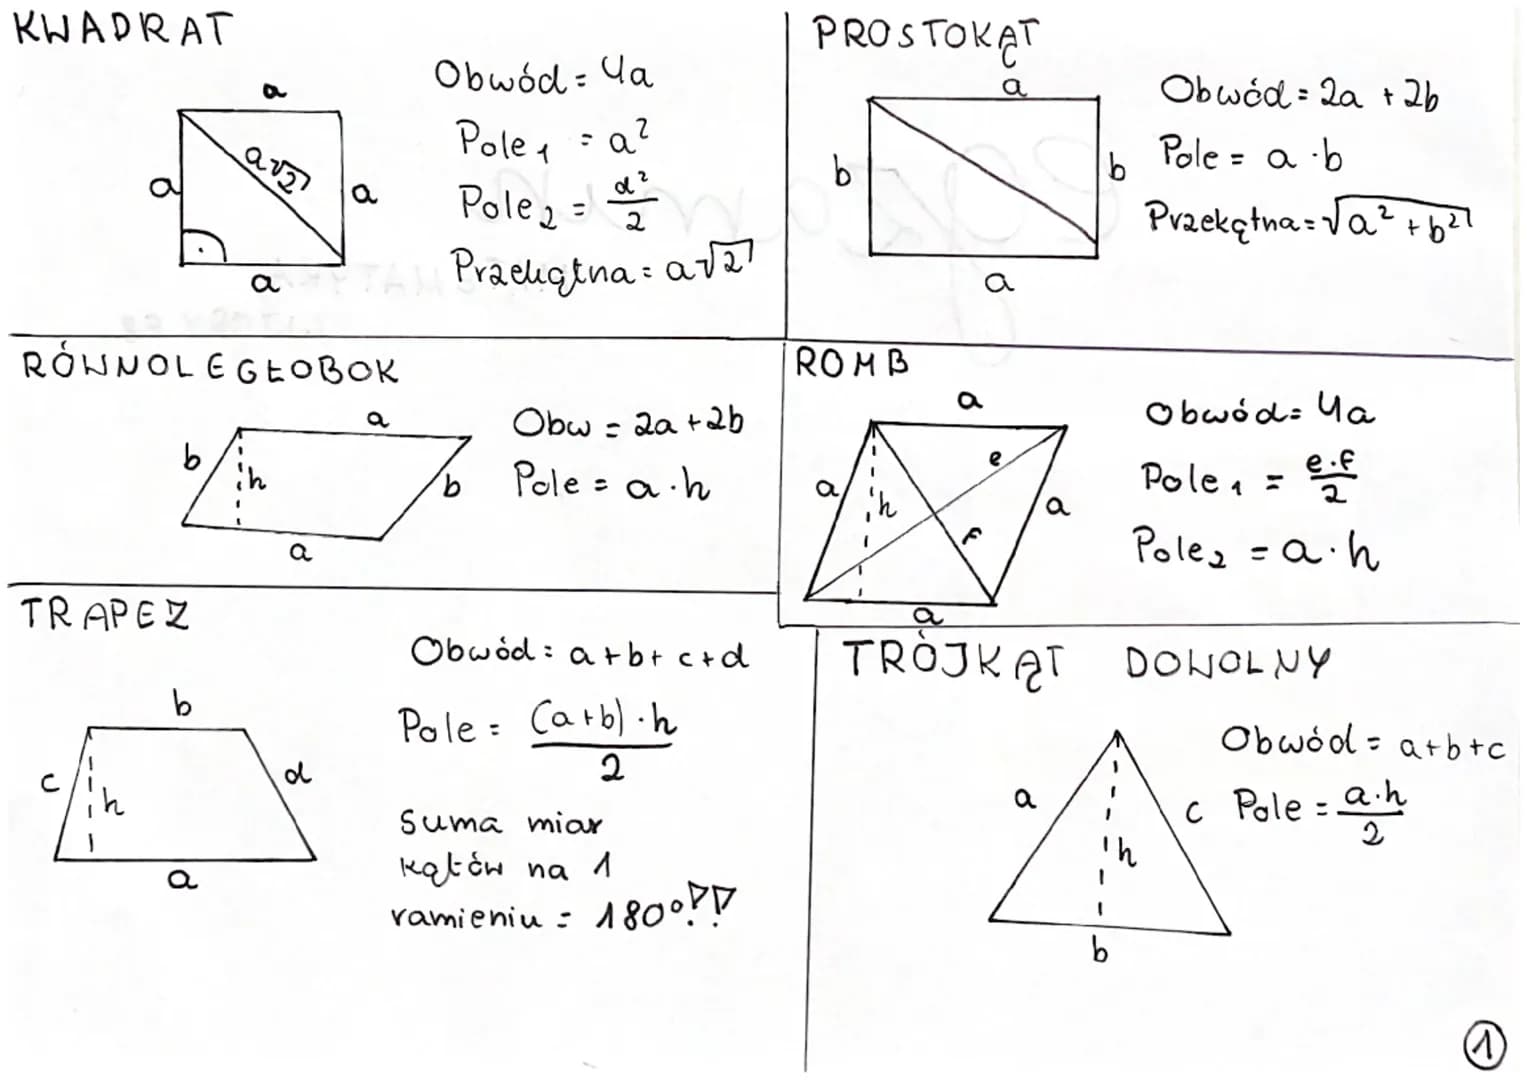 KWADRAT
a
a
a√2
a
a
Obwód = 4a
Pole₁ = a²
Pole₂ = d²/2
Przekątna = a√2
PROSTOKĄT
a
b
b
a
Obwód = 2a + 2b
Pole = a · b
Przekątna = √a² + b²
RÓWNOLEGŁOBOK
a
b
h
b
a
Obw = 2a + 2b
Pole = a · h
ROMB
a
e
a
h
a
f
a
Obwód = 4a
Pole₁ = e·f/2
Pole₂ = a · h
TRAPEZ
b
c
h
d
a
Obwód = a + b + c + d
Pole = (a+b) · h / 2
Suma miar
kątów na 1
ramieniu = 180°!!
TRÓJKĄT DOWOLNY
a
c
h
b
Obwód = a+b+c
Pole = a·h/2
1